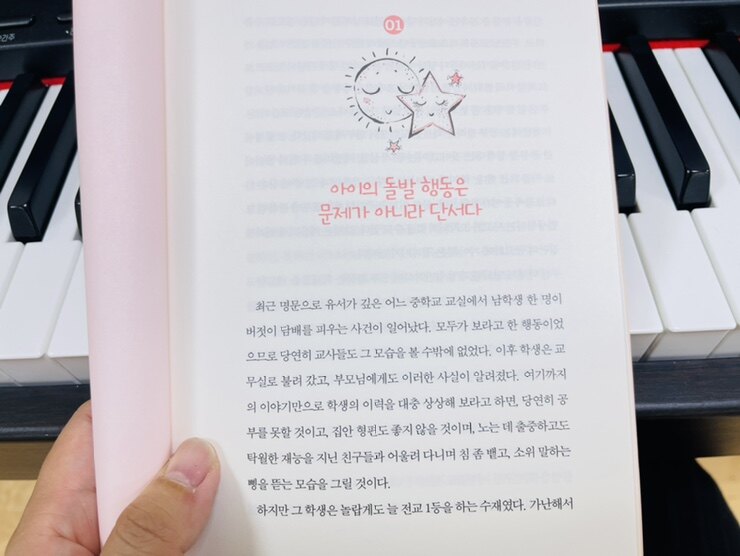 01
아이의 돌발 행동은
문제가 아니라 단서다
최근 명문으로 유서가 깊은 어느 중학교 교실에서 남학생 한 명이
버젓이 담배를 피우는 사건이 일어났다. 모두가 보라고 한 행동이었
으므로 당연히 교사들도 그 모습을 볼 수밖에 없었다. 이후 학생은 교
무실로 불려 갔고, 부모님에게도 이러한 사실이 알려졌다. 여기까지
의 이야기만으로 학생의 이력을 대충 상상해 보라고 하면, 당연히 공
부를 못할 것이고, 집안 형편도 좋지 않을 것이며, 노는 데 출중하고도
탁월한 재능을 지닌 친구들과 어울려 다니며 침 좀 뱉고, 소위 말하는
삥을 뜯는 모습을 그릴 것이다.
하지만 그 학생은 놀랍게도 늘 전교 1등을 하는 수재였다. 가난해서